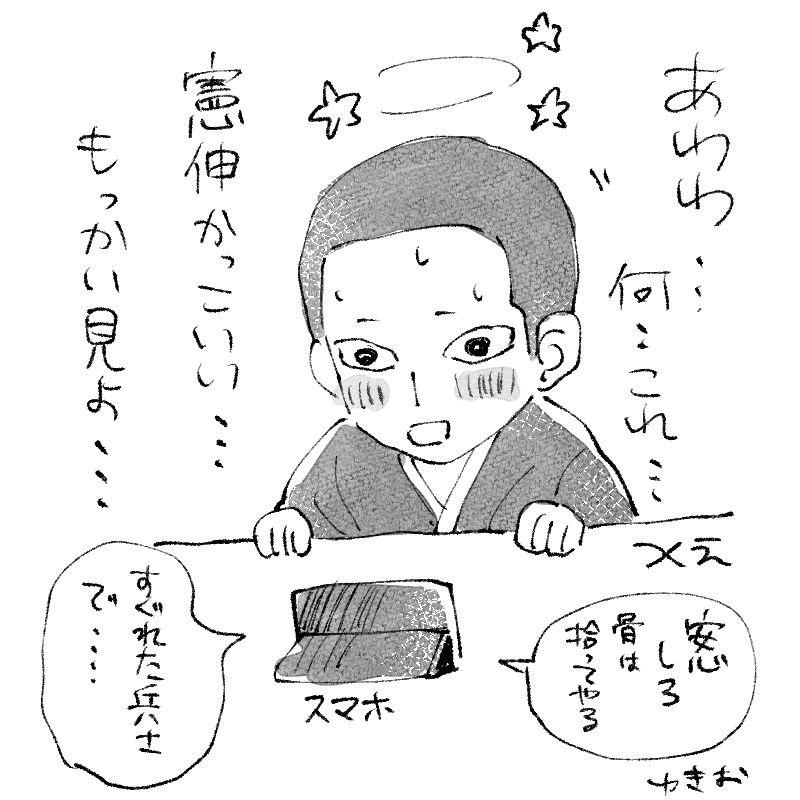 あわわ…
何…これ…
憲伸かっこいい…
もっかい見よ…
つくえ
安心しろ
骨は
拾ってやる
ゆきお
スマホ
すぐれた兵士
で‥‥